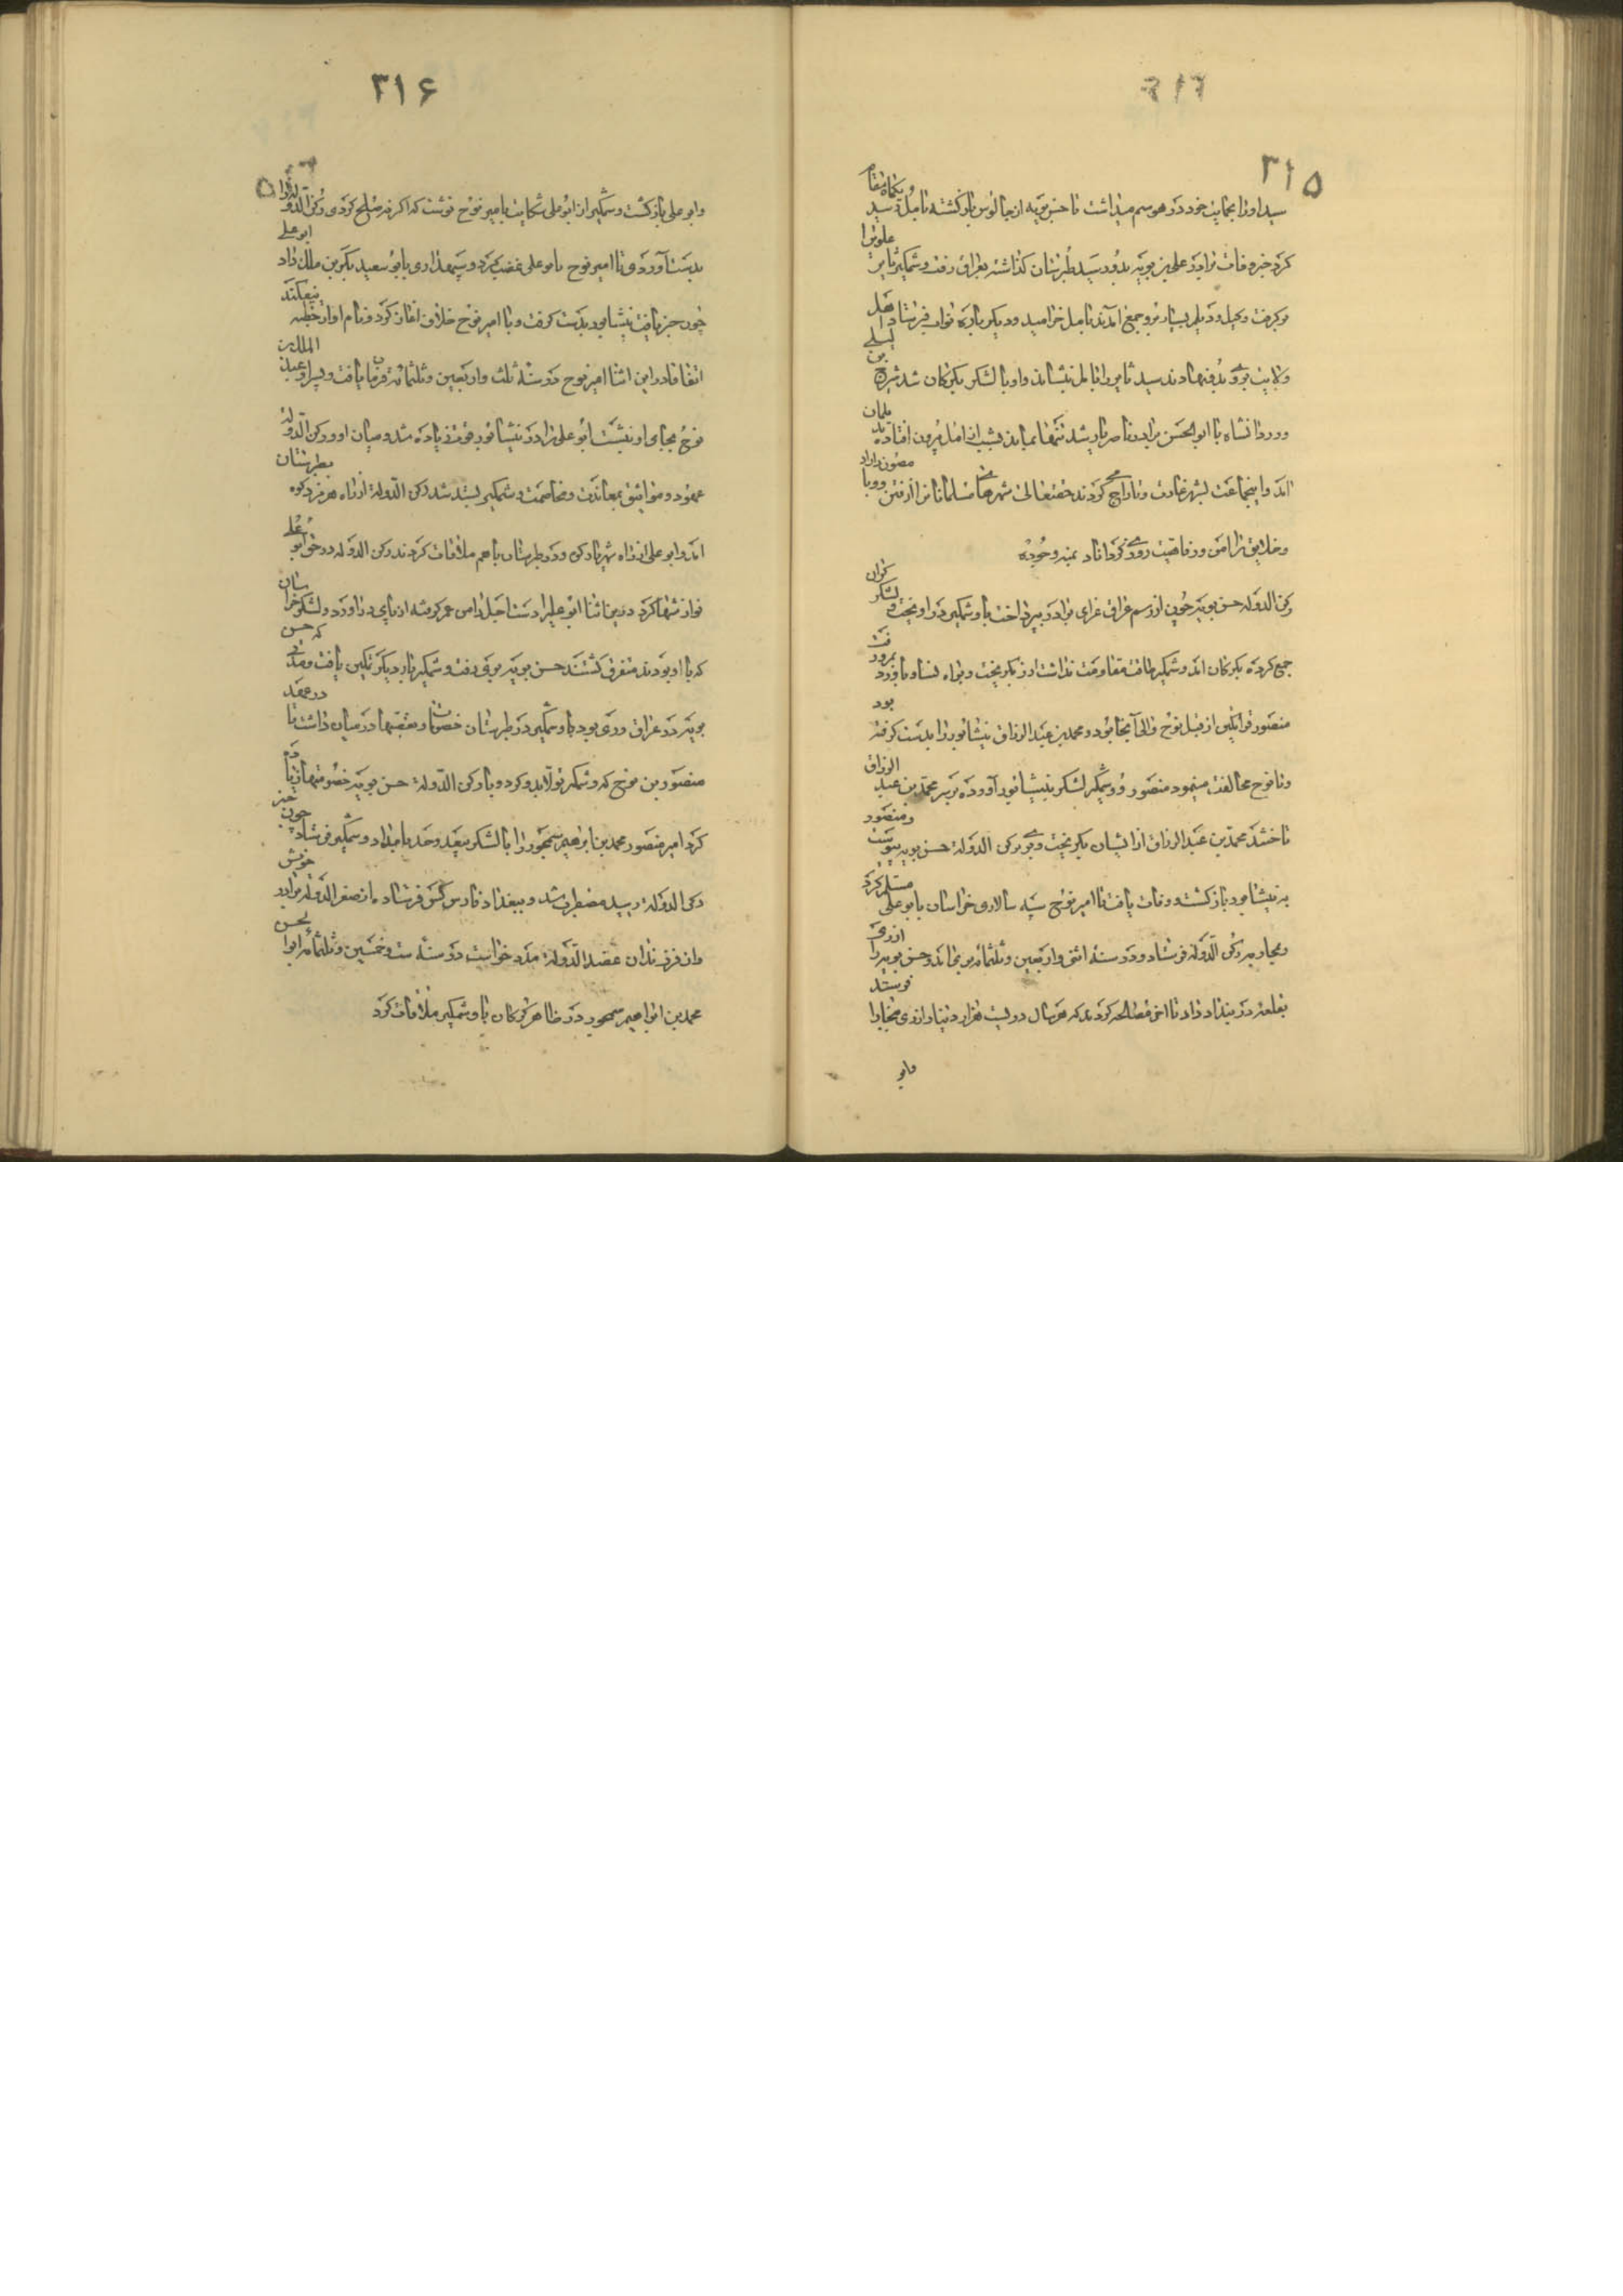 ۳۱۵
سید اورا بحمایت خود در هوسم میداشت تا حسن بویه از چالوس بازگشته بآمل رسید و یکماه مقام
کرد خبر وفات برادرر علی بن بویه بدو رسید طبرستان گذاشته بعراق رفت و شمکیر باز علویرا
برگرفت و بجیل و دیلم بسیار برو جمع آمدند بآمل خرامید و دیگر باره نواب فرستاد اهل
ولایت بروی بدفتهادند سید ثایر را بآمل نشاند و او با لشکر بکرکان شد شرح بن لیلی
و وردانشاه با ابوالحسن برادر ناصر یار شد تنها بماند بشب از آمل بیرون افتاده
اند و اینجماعت لشهر غارت و تاراج کردند حقتعالی شهرهای مسلمانانرا از فتن
و خلایق را امن و رفاهیت روزی گرداناد بمنه وجوده
رکن الدوله حسن بویه چون از رسم عزاء برادر بپرداخت با وشمکیر در آویخت و لشکر کران
جمع کرده بکرکان آمد وشمکیر طاقت مقاومت نداشت ازو بگریخت و براه نسا و باورد بمرو رفت
منصور قراتکین از قبل نوح والی آنجا بود و محمد بن عبد الرزاق نیشابور را بدست گرفته بود
و با نوح مخالفت مینمود منصور و وشمکیر لشکر بنیشابور آورده بر سر محمد بن عبد الرزاق
تاختند محمد بن عبد الرزاق از ایشان بگریخت و بری برکن الدوله حسن بویه پیوست و منصور
بنیشابور بازگشت و وفات یافت تا امیر نوح سپه سالاری خراسان بابو علی مسلم کرد
و بمحاربه رکن الدوله فرستاد و در سنه اثنی و اربعین و ثلثمائه بری آمد و حسن بویه را از ری
بقلعه در بنداد داد تا آخر مصالحه کردند که هر سال دویست هزار دینار از ری ببخارا فرستد
وابو
۳۱۶
وابو علی بازگشت وشمکیر از ابو علی شکایت بامیر نوح نوشت که اگر نه صلح کردی رکن الدوله را
بدست آوردی تا امیر نوح بابو علی غضب کرد و سپهداری بابو سعید بکر بن ملک داد ابو علی
چون خبر یافت نیشابور بدست گرفت و با امیر نوح خلاف آغاز کرد و نام او از خطبه بیفکند
اتفاقا در این اثنا امیر نوح در سنه ثلث و اربعین و ثلثمائه فرمان یافت و پسر او عبد الملک بن
نوح بجای او نشست ابو علی را در نیشابور قوت زیاده شد و میان او و رکن الدوله
عهود و مواثیق بمعاندت و مخاصمت وشمکیر بسته شد رکن الدوله از راه هرمزد کوه بطبرستان
آمد و ابو علی از راه شهریار کوه و در طبرستان باهم ملاقات کردند رکن الدوله در حق ابو علی
نوازشها کرد درین اثنا ابو علیرا دست اجل دامن عمر گرفته از پای درآورد و لشکر خراسان
که با او بودند متفرق گشتند حسن بویه بری رفت و شمکیر بار دیگر تمکین یافت و مدتی که حسن
بویه در عراق و ری بود با وشمکیر در طبرستان خصومات و تعصبها در میان داشت تا در عهد
منصور بن نوح که وشمکیر تولا بدو کرد و با رکن الدوله حسن بویه خصومتها زیاده
کرد امیر منصور محمد بن ابرهیم سمجور را با لشکر بیعد وحد بامداد وشمکیر فرستاد چون خبر
رکن الدوله رسید مضطرب شد و ببغداد و فارس کس فرستاد و از معز الدوله برادر خویش
و از فرزندان عضد الدوله مدد خواست در سنه ست و خمسین و ثلثمائه ابو الحسن
محمد بن ابراهیم سمجور در ظاهر کرکان با وشمکیر ملاقات کرد